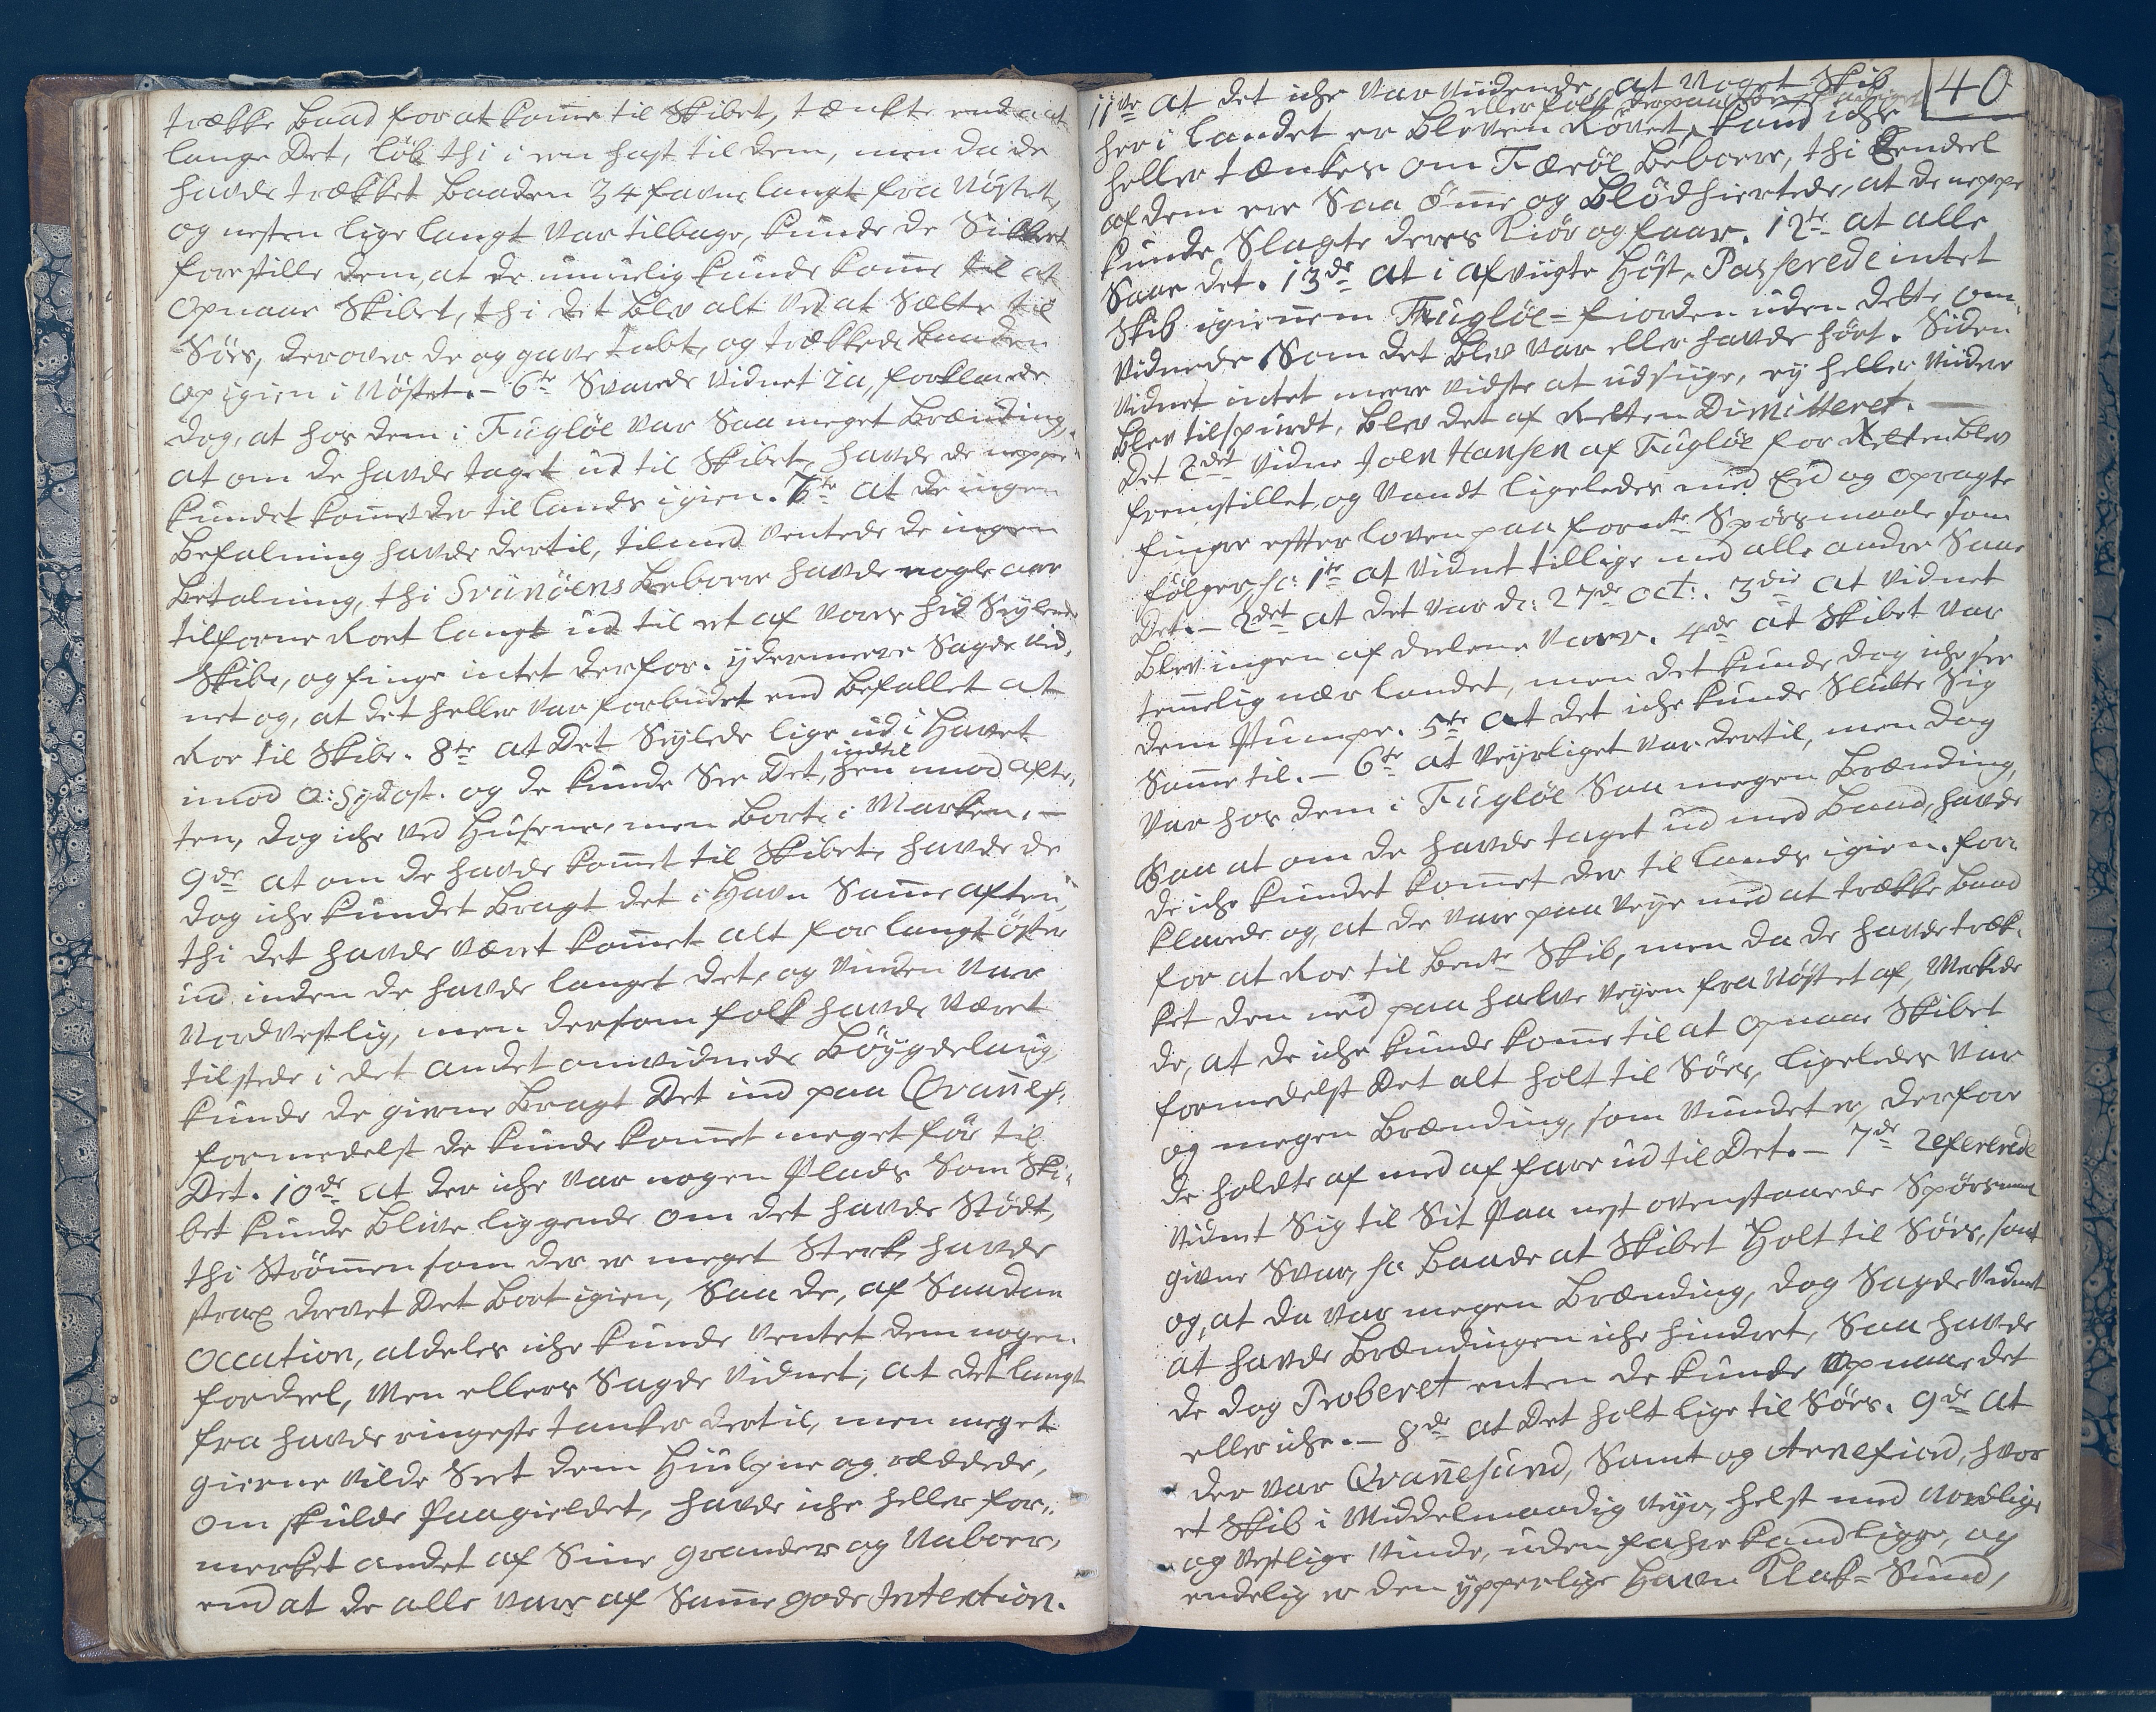 trække Baad for at komme til Skibet, tænkte endda at
lange Det, løb thi i en hast til dem, men da de
havde trækket Baaden 34 favne langt fra Nøstet,
og nesten lige langt var tilbage, kunde de Sikkert
forestille dem, at de umuelig kunde komme til at
opnaae Skibet, thi det blev alt ved at Sætte til
Søes, derover de og gave tabt, og trækkede baaden
op igien i Nøstet. – 6te Svarede Vidnet Ja, forklarede
dog, at hos dem i Fugløe var Saa meget Brænding,
at om de havde taget ud til Skibet, havde de neppe
kundet kommet der til lands igien. 7de at de ingen
Befalning havde dertil, tilmed ventede de ingen
Betalning, thi Svinøens Beboere havde nogle aar
tilforne Roet langt ud til et af vores hid Seylende
Skibe, og finge intet derfor. ydermeere Sagde Vid-
net og, at det heller var forbudet end befallet at
Roe til Skibe. 8te at Det Seylede lige ud i Havet
imod O: Sydost. og de kunde See Det, indtil hen imod afte-
ten, dog iche ved Husene, men borte i Marken. –
9de at om de havde kommet til Skibet, havde de
dog iche kundet Bragt det i Havn Samme aften,
thi det havde været kommet alt for langt øster
ud inden de havde langet det, og Vinden var
Nordvestlig, men dersom folk havde været
tilstede i det andet omvidnede Bøygdelaug,
kunde de gierne Bragt Det ind paa Qvannes:
formedelst de kunde kommet meget før til
Det. 10de at der iche var nogen Plads Som Ski-
bet kunde blive liggende om det havde Stødt,
thi Strømmen som der er meget Sterk, havde
strax drevet Det bort igien, Saa de, af Saadan
Occation, aldeles iche kunde ventet dem nogen
fordeel, Men ellers Sagde Vidnet, at det langt
fra havde ringeste tanker dertil, men meget
gierne vilde Seet dem Hiulpne og reddede,
om skulde Paagieldet, havde iche heller for-
merket andet af Sine grander og Naboer,
end at de alle vare af Samme gode Intention.
40
11te at det iche var vidende, at noget Skib
eller folk derpaa
her i landet er bleven Røvet, kand iche
heller tænkes om Færøe Beboere, thi Eendeel
af dem ere Saa ømme og Blødhiertede, at de neppe
kunde Slagte deres Kiør og faar. 12te at alle
Saae det. 13de at i afvigte Høst, Passerede intet
Skib igiennem Fugløe-fiorden uden dette om-
vidnede Som det blev var eller havde hørt. Siden
Vidnet intet meere vidste at udsige, ey heller viidere
blev tilspurdt, blev det af Retten Dimitteret. –
Det 2det Vidne Joen Hansen af Fugløe for Retten blev
fremstillet, og Vandt ligeledes med Eed og opragte
finger effter loven paa formte Spørsmaale som
følger, sc: 1te at Vidnet tillige med alle andre Saae
Det. – 2det at det var d: 27de oct:. 3die at Vidnet
blev ingen af delene Vaer. 4de at Skibet var
temmelig nær landet, men det kunde dog iche see
dem Pumpe. 5te at det iche kunde Slutte Sig
Samme til. – 6te at Veyrliget var dertil, men dog
var hos dem i Fugløe Saa megen Brænding,
Saa at om de havde taget ud med baad, havde
de iche kundet kommet der til lands igien. for-
klarede og, at de vare paa veye med at trække baad
for at Roe til bemte Skib, men da de havde træk-
ket den ned paa halve veyen fra Nøstet af, Merkede
de, at de iche kunde komme til at opnaae Skibet
formedelst Det alt holt til Søes, ligeledes var
og megen Brænding, som Vundet er, derfor
de holdte af med at fare ud til Det. – 7de Refererede
Vidnet Sig til Sit Paa nest ovenstaaende Spørsmaal
givne Svar, sc: baade at Skibet Holt til Søes, samt
og, at da var megen Brænding, dog Sagde Vidnet
at havde Brændingen iche hindret, Saa havde
de dog Proberet enten de kunde opnaae det
eller iche. – 8de at Det holt lige til Søes. 9de at
der var Qvannesund, Samt og Arnefiord, hvor
et Skib i Middelmaadig Veyr, helst med Nordlige
og Vestlige Vinde, uden fahre kand ligge, og
endelig er den ypperlige Havn Klak-Sund,